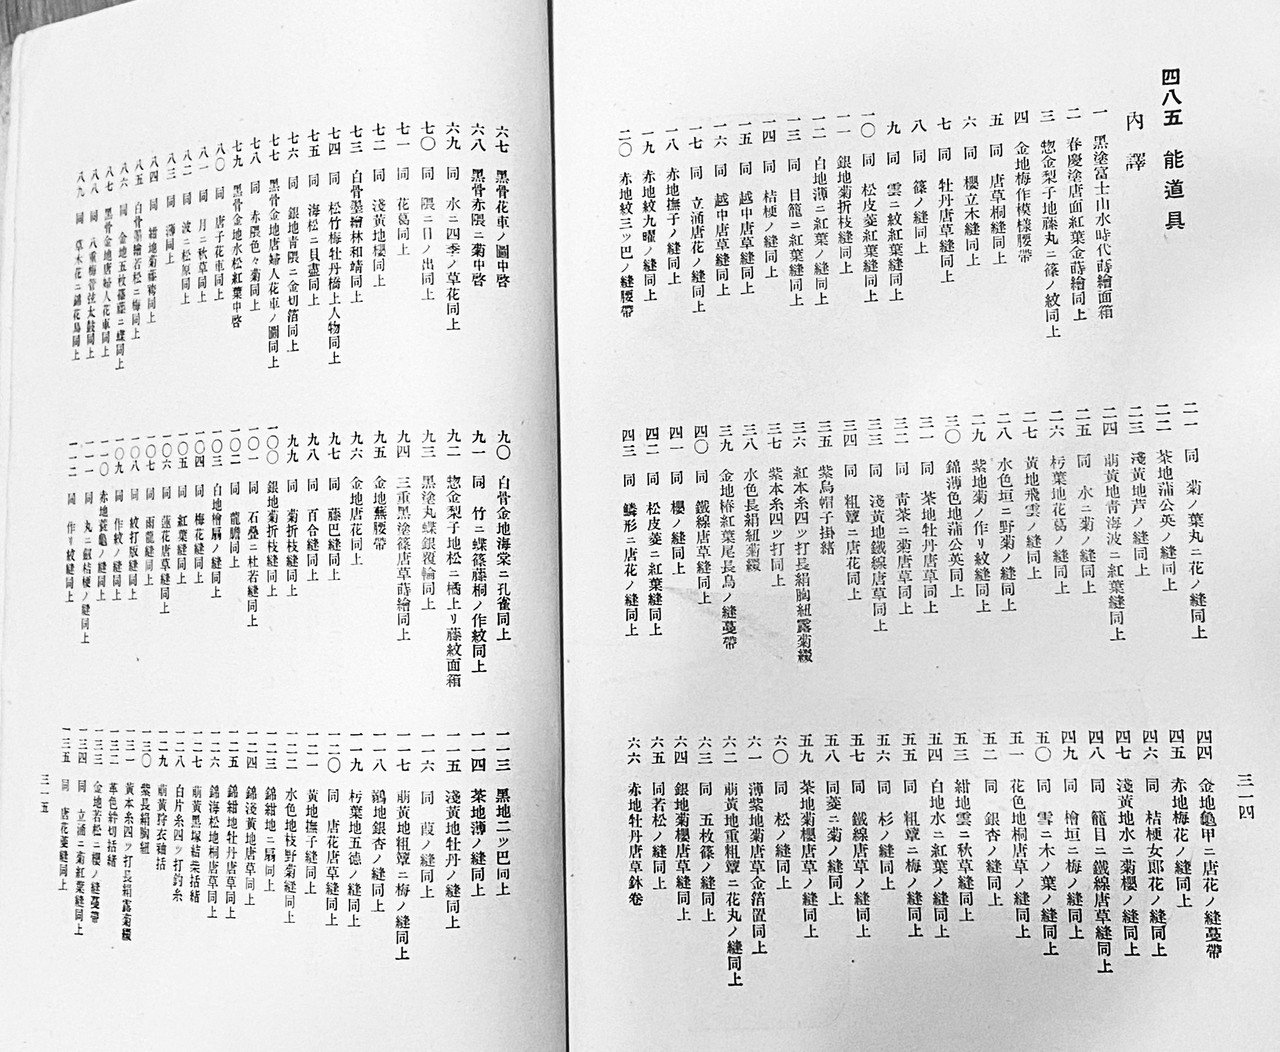 四八五 能道具
内譯
一 黑塗富士山水時代蒔繪面箱
二 春慶塗唐面紅葉金蒔繪同上
三 惣金梨子地藤丸ニ篠ノ紋同上
四 金地梅作模樣腰帶
五 同 唐草桐ノ縫同上
六 同 櫻立木ノ縫同上
七 同 牡丹唐草ノ縫同上
八 同 篠ノ縫同上
九 同 雲ニ紋紅葉ノ縫同上
一〇 同 松皮菱紅葉ノ縫同上
一一 銀地菊折枝縫同上
一二 白地薄ニ紅葉ノ縫同上
一三 同 目籠ニ紅葉ノ縫同上
一四 同 桔梗ノ縫同上
一五 同 越中唐草ノ縫同上
一六 同 越中唐草ノ縫同上
一七 同 立涌唐花ノ縫同上
一八 赤地撫子ノ縫同上
一九 赤地紋九曜ノ縫同上
二〇 赤地紋三ッ巴ノ縫腰帶
二一 同 菊ノ葉丸ニ花ノ縫同上
二二 茶地蒲公英ノ縫同上
二三 淺黃地芦ノ縫同上
二四 萠黃地靑海波ニ紅葉縫同上
二五 同 水ニ菊ノ縫同上
二六 朽葉地花葛ノ縫同上
二七 黃地飛雲ノ縫同上
二八 水色垣ニ野菊ノ縫同上
二九 紫地菊ノ作リ紋縫同上
三〇 錦薄色地蒲公英同上
三一 同 茶地牡丹唐草同上
三二 同 靑茶ニ菊唐草同上
三三 同 淺黃地鐵線唐草同上
三四 同 粗簟ニ唐花同上
三五 紫烏帽子掛緒
三六 紅本糸四ッ打長絹胸紐露菊綴
三七 紫本糸四ッ打同上
三八 水色長絹紐菊綴
三九 金地椿紅葉尾長鳥ノ縫蔓帶
四〇 同 鐵線唐草縫同上
四一 同 櫻ノ縫同上
四二 同 松皮菱ニ紅葉縫同上
四三 同 鱗形ニ唐花ノ縫同上
四四 金地龜甲ニ唐花ノ縫蔓帶
四五 赤地梅花ノ縫同上
四六 同 桔梗女郎花ノ縫同上
四七 淺黃地水ニ菊櫻ノ縫同上
四八 同 籠目ニ鐵線唐草縫同上
四九 同 檜垣ニ梅ノ縫同上
五〇 同 雪ニ木ノ葉ノ縫同上
五一 花色地桐唐草ノ縫同上
五二 同 銀杏ノ縫同上
五三 紺地雲ニ秋草縫同上
五四 白地水ニ紅葉ノ縫同上
五五 同 粗簟ニ梅ノ縫同上
五六 同 杉ノ縫同上
五七 同 鐵線唐草ノ縫同上
五八 同菱ニ菊ノ縫同上
五九 茶地菊櫻唐草ノ縫同上
六〇 同 松ノ縫同上
六一 薄紫地菊唐草金箔置同上
六二 萠黃地重粗簟ニ花丸ノ縫同上
六三 同 五枚篠ノ縫同上
六四 銀地菊櫻唐草縫同上
六五 同若松ノ縫同上
六六 赤地牡丹唐草鉢卷
三一四
六七 黑骨花車ノ圖中啓
六八 黑骨赤隈ニ菊中啓
六九 同 水ニ四季ノ草花同上
七〇 同 隈ニ日ノ出同上
七一 同 花葛同上
七二 同 淺黃地櫻同上
七三 白骨墨繪林和靖同上
七四 同 松竹梅牡丹橋上人物同上
七五 同 海松ニ貝盡同上
七六 同 銀地靑隈ニ金切箔同上
七七 黑骨金地唐婦人花車ノ圖同上
七八 同 赤隈色々菊同上
七九 黑骨金地水松紅葉中啓
八〇 同 唐子花車同上
八一 同 月ニ秋草同上
八二 同 波ニ松原同上
八三 同 薄同上
八四 同 紺地菊藤鷄同上
八五 白骨墨繪若松ニ梅同上
八六 同 金地五枚篠藤ニ蝶同上
八七 黑骨金地唐婦人花車同上
八八 同 八重梅菅弦太鼓同上
八九 同 草木花ニ錦花鳥同上
九〇 白骨金地海棠ニ孔雀同上
九一 同 竹ニ蝶篠藤桐ノ作紋同上
九二 惣金梨子地松ニ橘上リ藤紋面箱
九三 黑塗丸蝶銀覆輪同上
九四 三重黑塗篠唐草蒔繪同上
九五 金地蕪腰帶
九六 金地唐花同上
九七 同 藤巴縫同上
九八 同 百合縫同上
九九 同 菊折枝縫同上
一〇〇 銀地菊折枝縫同上
一〇一 同 石疊ニ杜若縫同上
一〇二 同 龍膽同上
一〇三 白地檜扇ノ縫同上
一〇四 同 梅花縫同上
一〇五 同 紅葉縫同上
一〇六 同 蓮花唐草縫同上
一〇七 同 雨龍縫同上
一〇八 同 紋打版縫同上
一〇九 同 作紋ノ縫同上
一一〇 赤地蓑龜ノ縫同上
一一一 同 丸ニ劔桔梗ノ縫同上
一一二 同 作リ紋縫同上
一一三 黑地二ッ巴同上
一一四 茶地薄ノ縫同上
一一五 淺黃地牡丹ノ縫同上
一一六 同 葭ノ縫同上
一一七 萠黃地粗簟ニ梅ノ縫同上
一一八 鶸地銀杏ノ縫同上
一一九 朽葉地五德ノ縫同上
一二〇 同 唐花唐草縫同上
一二一 黃地撫子縫同上
一二二 水色地枝野菊縫同上
一二三 錦紺地ニ扇同上
一二四 錦淺黃地唐草同上
一二五 錦紺地牡丹唐草同上
一二六 錦海松地桐唐草同上
一二七 萠黃黑塚結桒括緒
一二八 白片糸四ッ打釣糸
一二九 萠黃狩衣袖括
一三〇 紫長絹胸紐
一三一 黃本糸四ッ打長絹露菊綴
一三二 革色紵切括緒
一三三 金地若松ニ櫻ノ縫蔓帶
一三四 同 立涌ニ菊紅葉縫同上
一三五 同 唐花菱縫同上
三一五